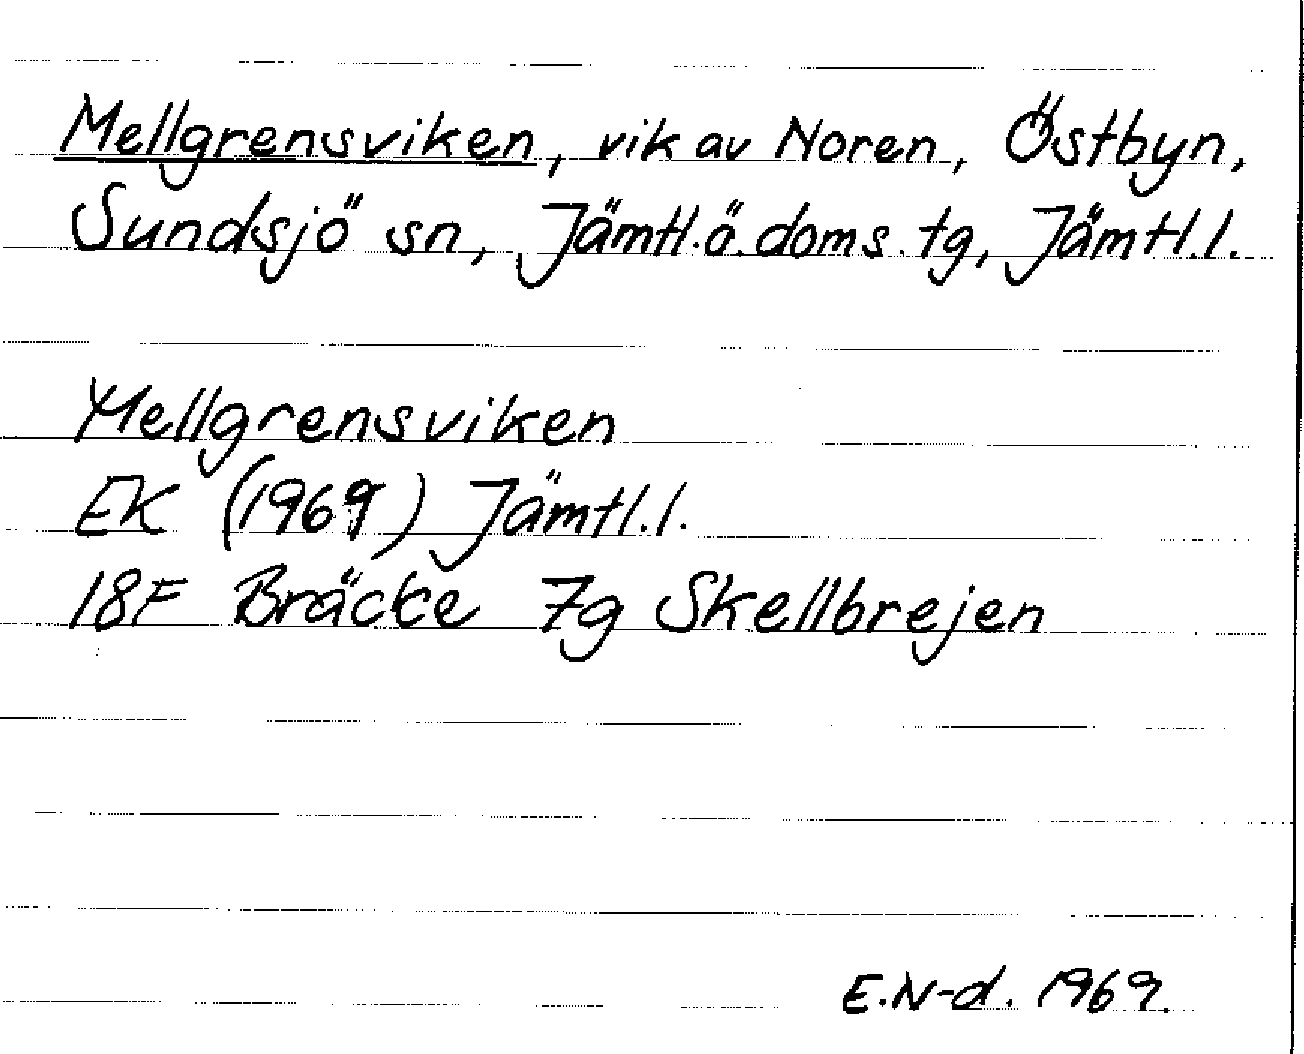 Mellgrensviken, vik av Noren, Östbyn,
Sundsjö sn, Jämtl.ö.doms.tg, Jämtl.l.
Mellgrensviken
EK (1969) Jämtl.l.
18F Bräcke 7g Skellbrejen
E.N-d. 1969.